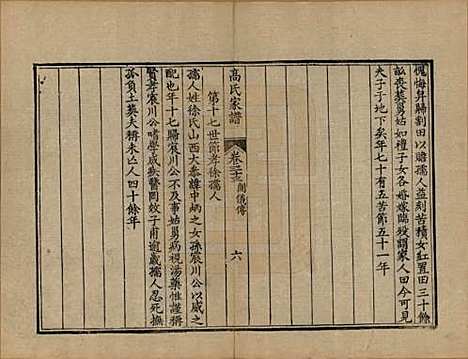 愧悔昇歸割田以贍孺人益刻苦積女紅置田三十餘
畝喪葬舅姑如禮子女各婚嫁臨歿謂家人曰今可見
夫子于地下矣年七十有五苦節五十一年
高氏家譜
卷二十
閫儀傳
六
第十七世節孝徐孺人
孺人姓徐氏山西大參諱中炳之女孫宸川公以威之
配也年十七歸宸川公不及事姑舅病視湯藥惟謹稱
賢孝宸川公嗜學成疾醫罔效子甫逾歲孺人忍死撫
孤負土葬夫稱未亡人四十餘年